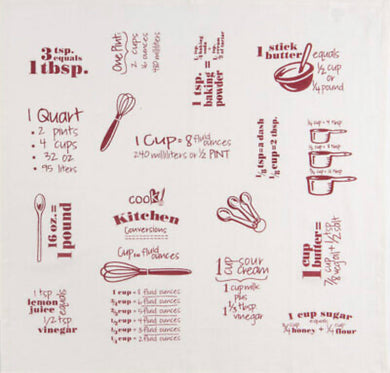 3 tsp.
equals
1 tbsp.
One Pint
2 cups
16 ounces
480 milliliters
1 tsp.
baking
powder
=
1 stick
butter
equals
1/2 cup
or
1/4 pound
1 Quart
• 2 pints
• 4 cups
• 32 oz
• .95 liters
1 Cup = 8 fluid ounces
240 milliliters or 1/2 PINT
1/8 tsp = a dash
1/8 cup = 2 tbsp.
16 oz. =
1 pound
cook!
Kitchen
Conversions
Cup to fluid ounces
1 cup = 8 fluid ounces
fluid ounces
fluid ounces
fluid ounces
fluid ounces
fluid ounces
1 cup sour
cream =
1 cup milk
plus
1 1/3 tbsp
vinegar
1 cup
butter =
7/8 veg oil + 1/2 salt
1 tsp equals
lemon
juice
1/2 tsp
vinegar
1 cup sugar
3/4 cup honey + 1/4 cup flour